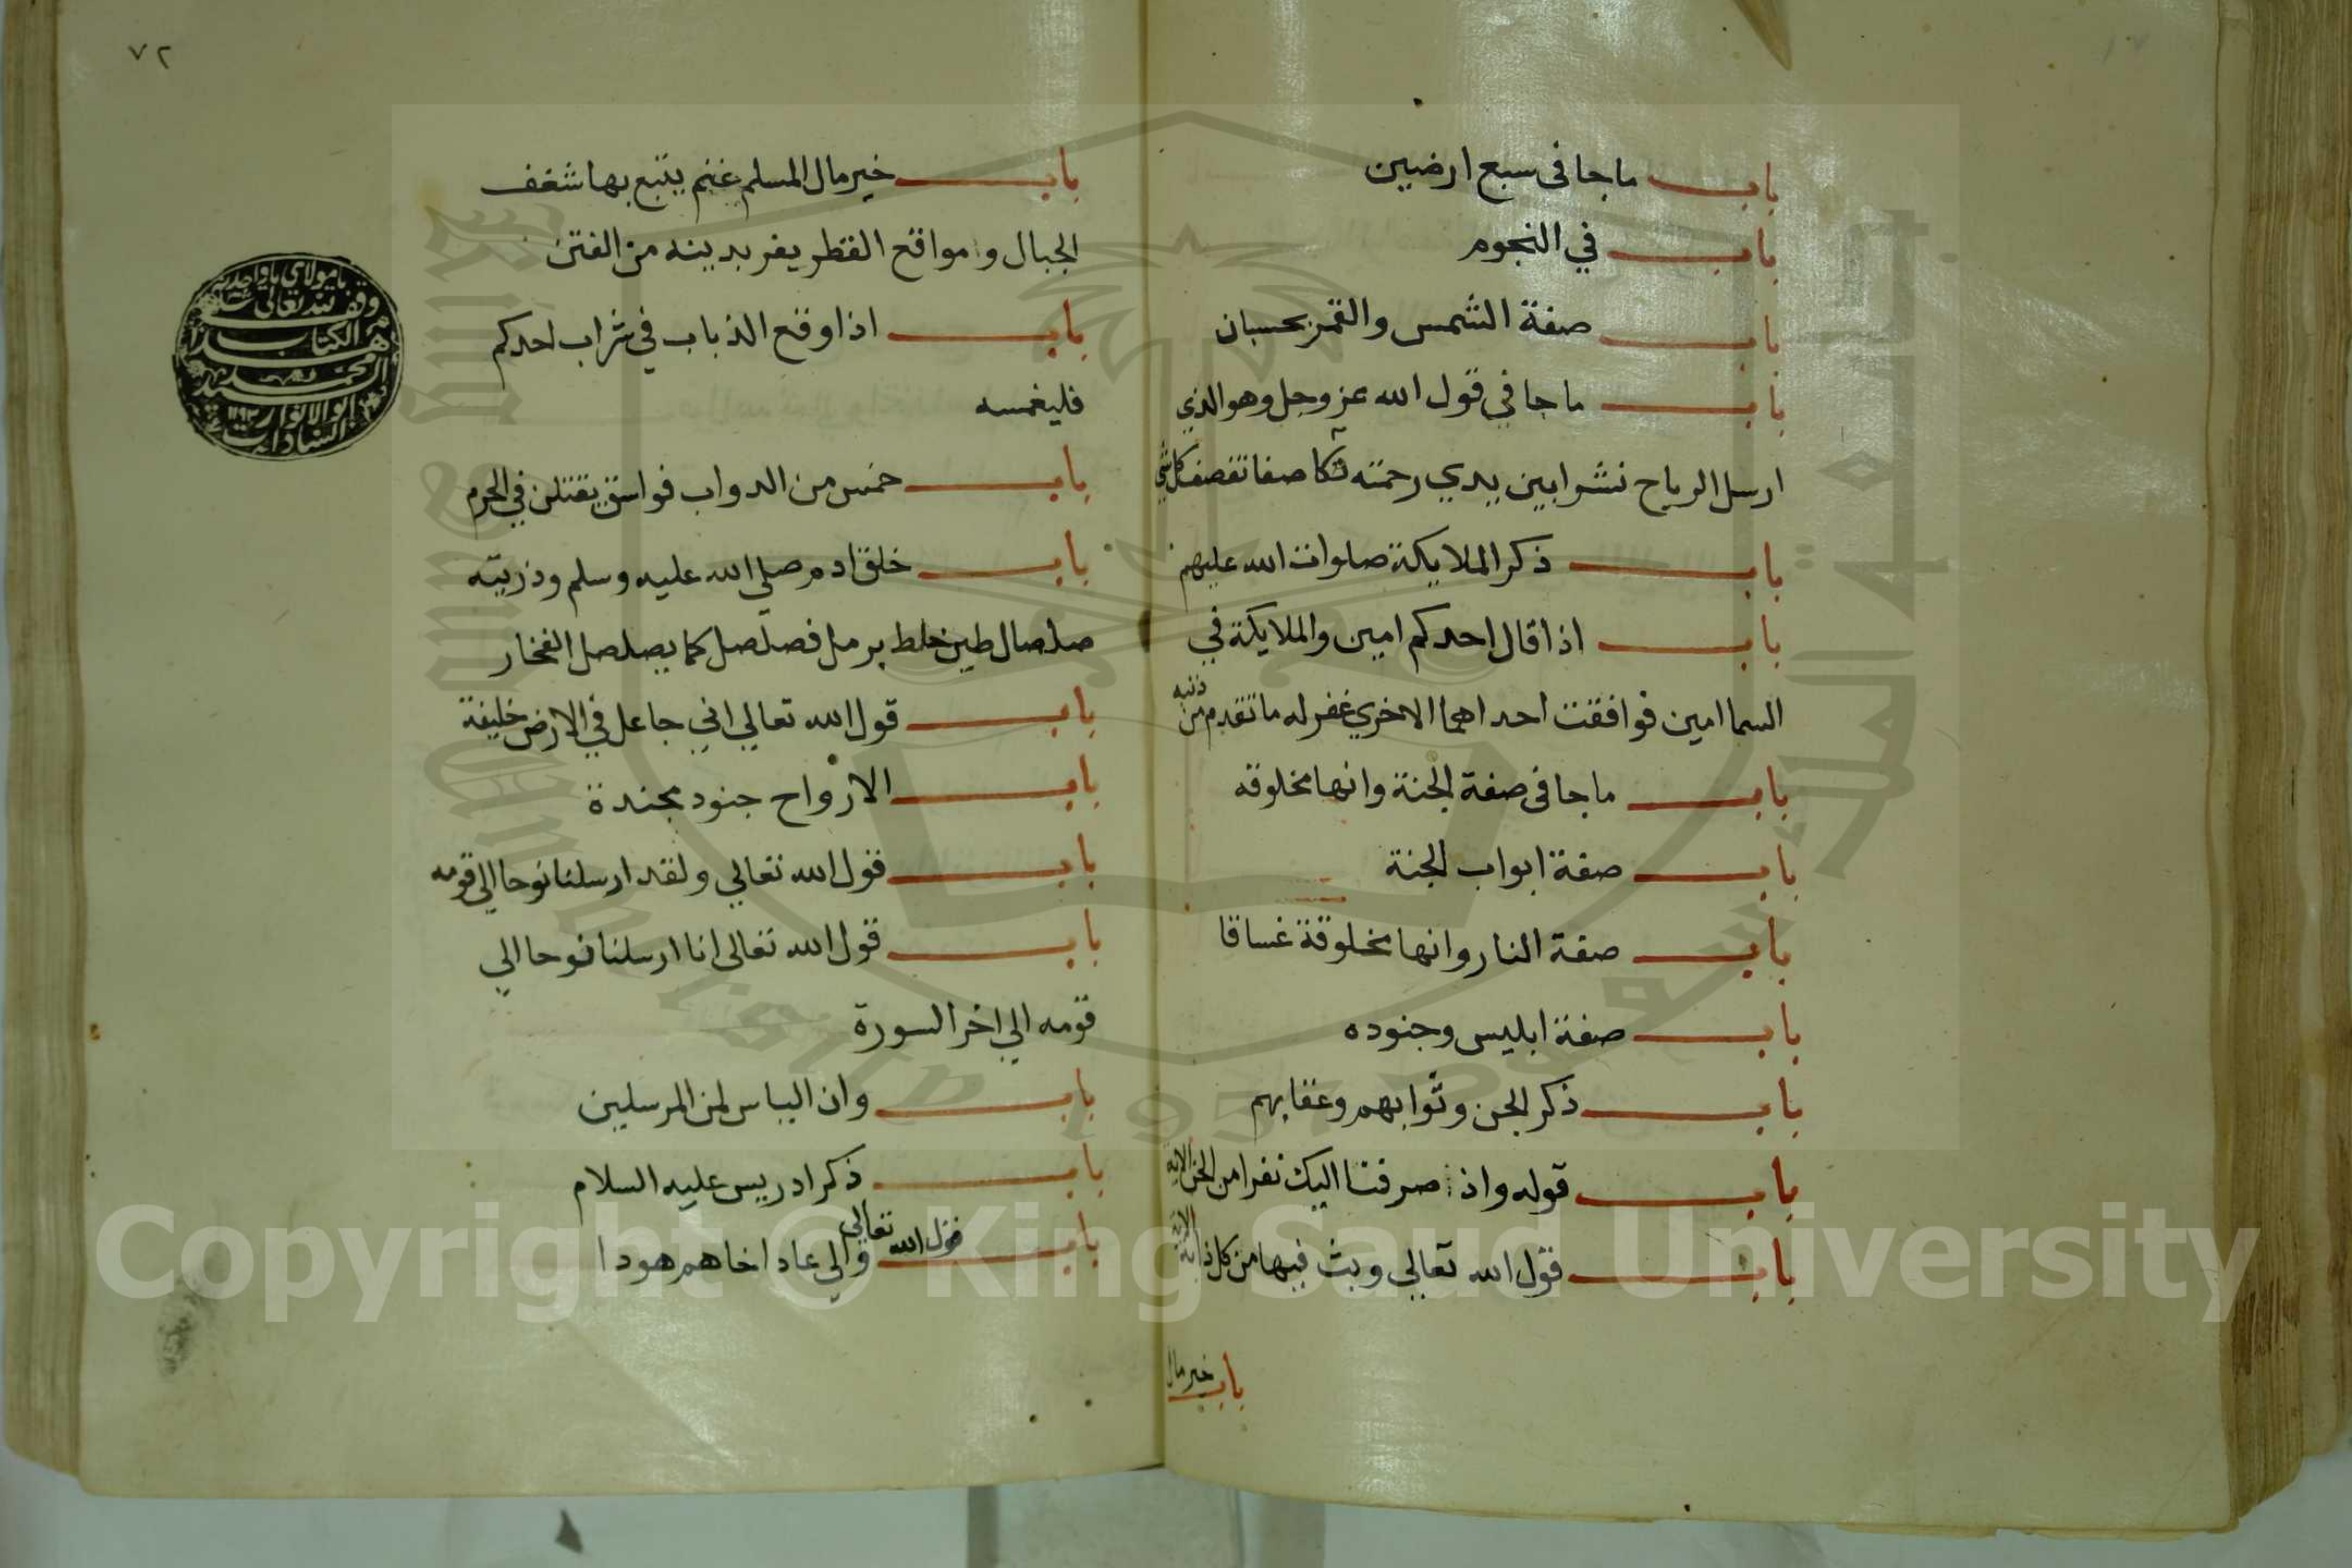 باب ما جا فى سبع ارضين
باب في النجوم
باب صفة الشمس والقمر بحسبان
باب ما جا في قول الله عز وجل وهو الذي
ارسل الرياح نشرا بين يدي رحمته قاصفا تقصف كل شي
باب ذكر الملايكة صلوات الله عليهم
باب اذا قال احدكم امين والملايكة في
السما امين فوافقت احداهما الاخري غفر له ما تقدم من ذنبه
باب ما جا فى صفة الجنة وانها مخلوقه
باب صفة ابواب الجنة
باب صفة النار وانها مخلوقة غساقا
باب صفة ابليس وجنوده
باب ذكر الجن وثوابهم وعقابهم
باب قوله واذ صرفنا اليك نفرا من الجن الاية
باب قول الله تعالي وبث فيها من كل دابة الاية
باب خير مال
٧٢
باب خير مال المسلم غنم يتبع بها شغف
الجبال ومواقع القطر يفر بدينه من الفتن
باب اذا وقع الذباب في شراب احدكم
فليغمسه
باب خمس من الدواب فواسق يقتلن في الحرم
باب خلق ادم صلي الله عليه وسلم وذريته
صلصال طين خلط برمل فصلصل كما يصلصل الفخار
باب قول الله تعالي اني جاعل في الارض خليفة
باب الارواح جنود مجندة
باب قول الله تعالي ولقد ارسلنا نوحا الي قومه
باب قول الله تعالى انا ارسلنا نوحا الي
قومه الي اخر السورة
باب وان الياس لمن المرسلين
باب ذكر ادريس عليه السلام
باب قول الله تعالي والي عاد اخاهم هودا
وقف لله تعالى
هذا الكتاب
Copyright © King Saud University
1957